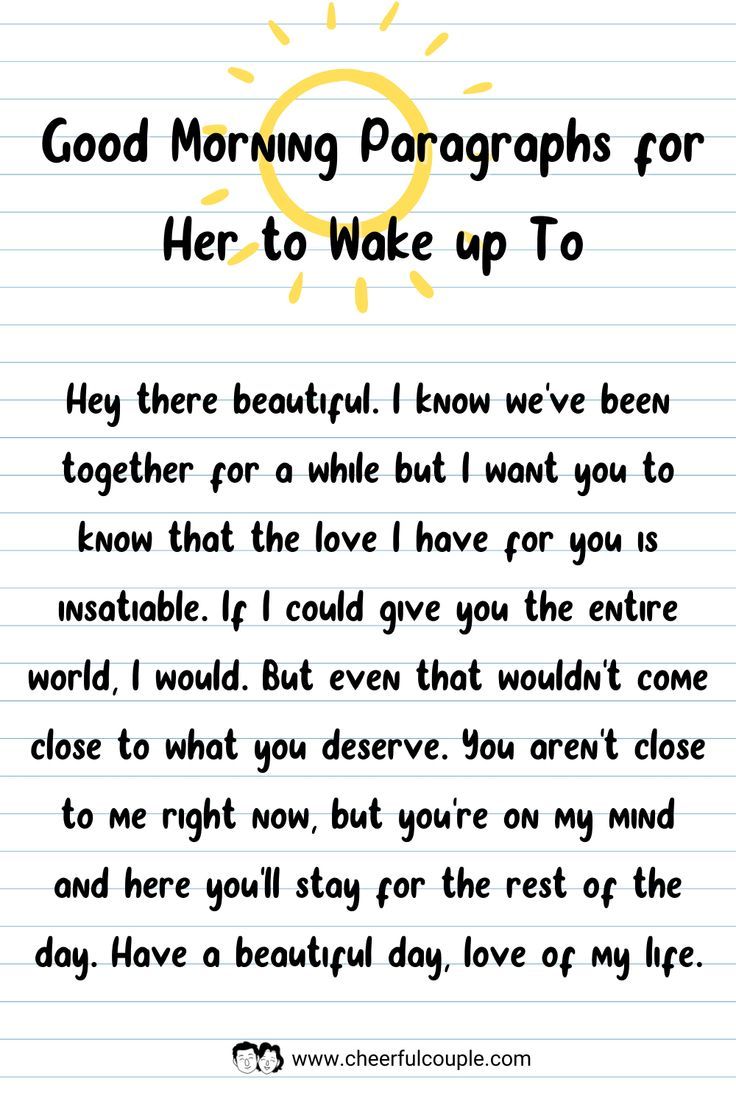 Good Morning Paragraphs for
Her to Wake up To
Hey there beautiful. I know we've been
together for a while but I want you to
know that the love I have for you is
insatiable. If I could give you the entire
world, I would. But even that wouldn't come
close to what you deserve. You aren't close
to me right now, but you're on my mind
and here you'll stay for the rest of the
day. Have a beautiful day, love of my life.
www.cheerfulcouple.com